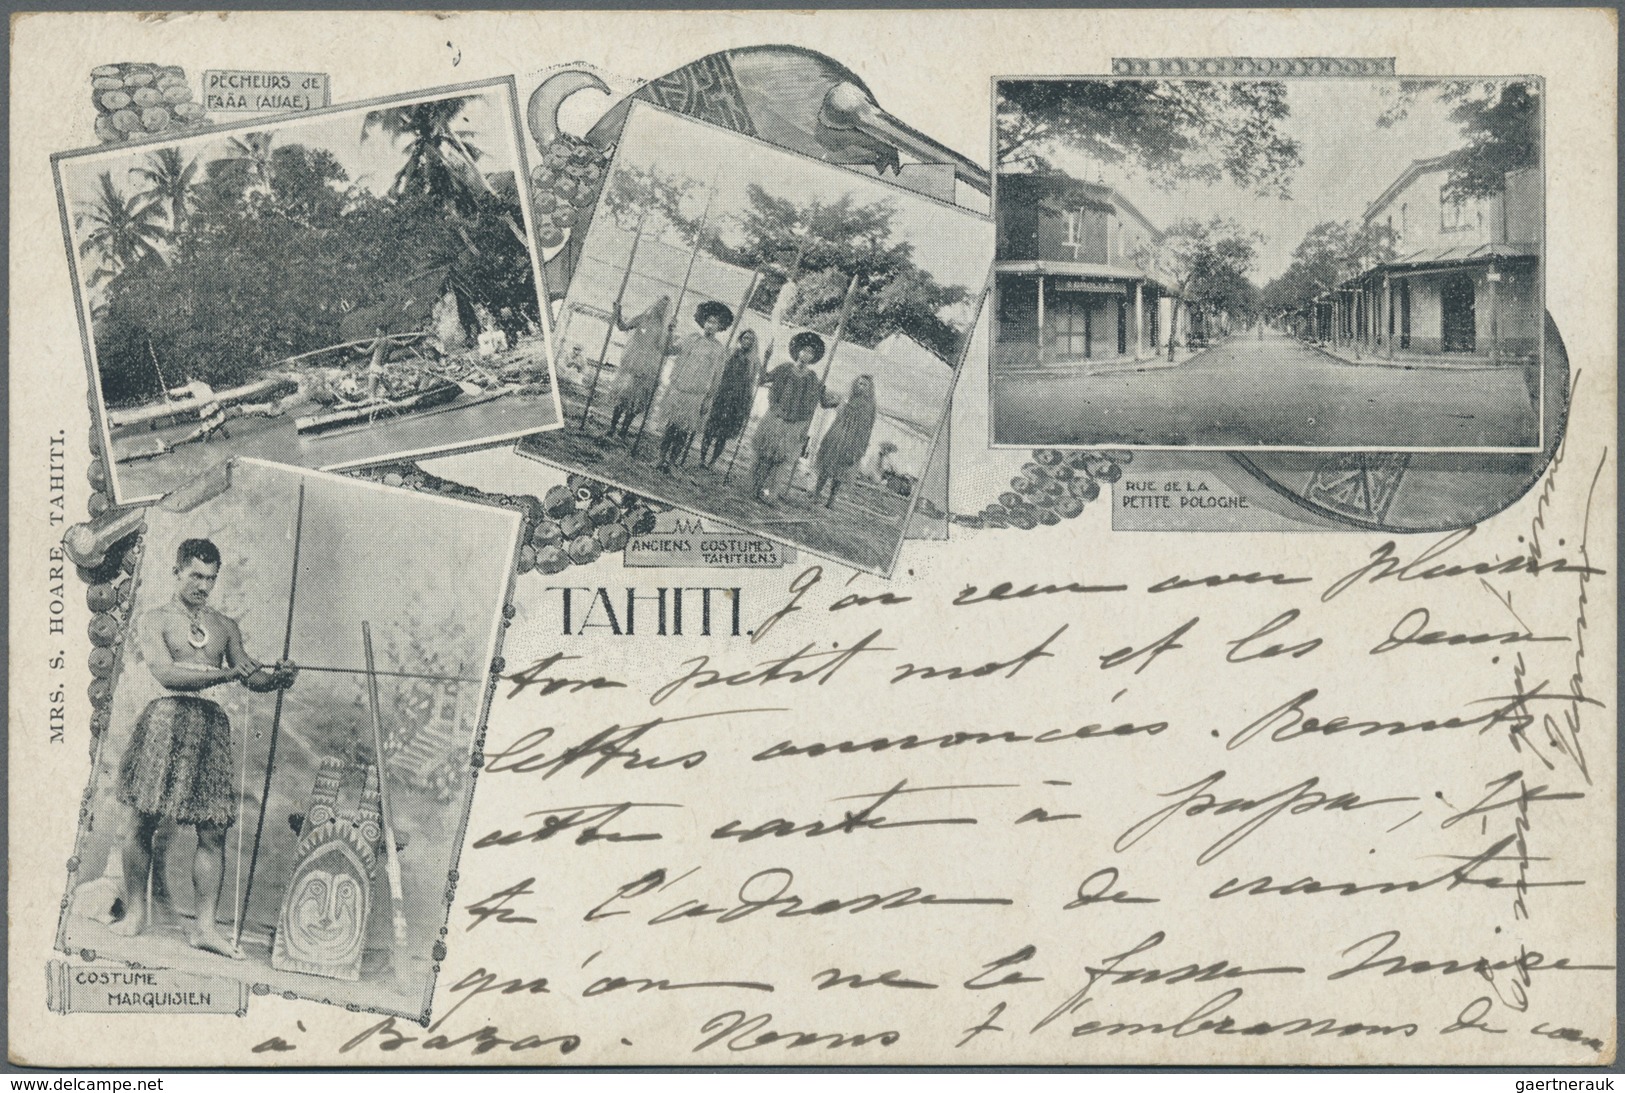 PÊCHEURS de
FAÄA (AUAE)
ANCIENS COSTUMES
TAHITIENS
RUE de LA
PETITE POLOGNE
MRS. S. HOARE, TAHITI.
COSTUME
MARQUISIEN
TAHITI.
J'ai reçu avec plaisir
ton petit mot et les deux
lettres annoncées. Remets
cette carte à papa, je
te l'adresse de crainte
qu'on ne le fasse
à . Nous t'embrassons de
gaertnerauk